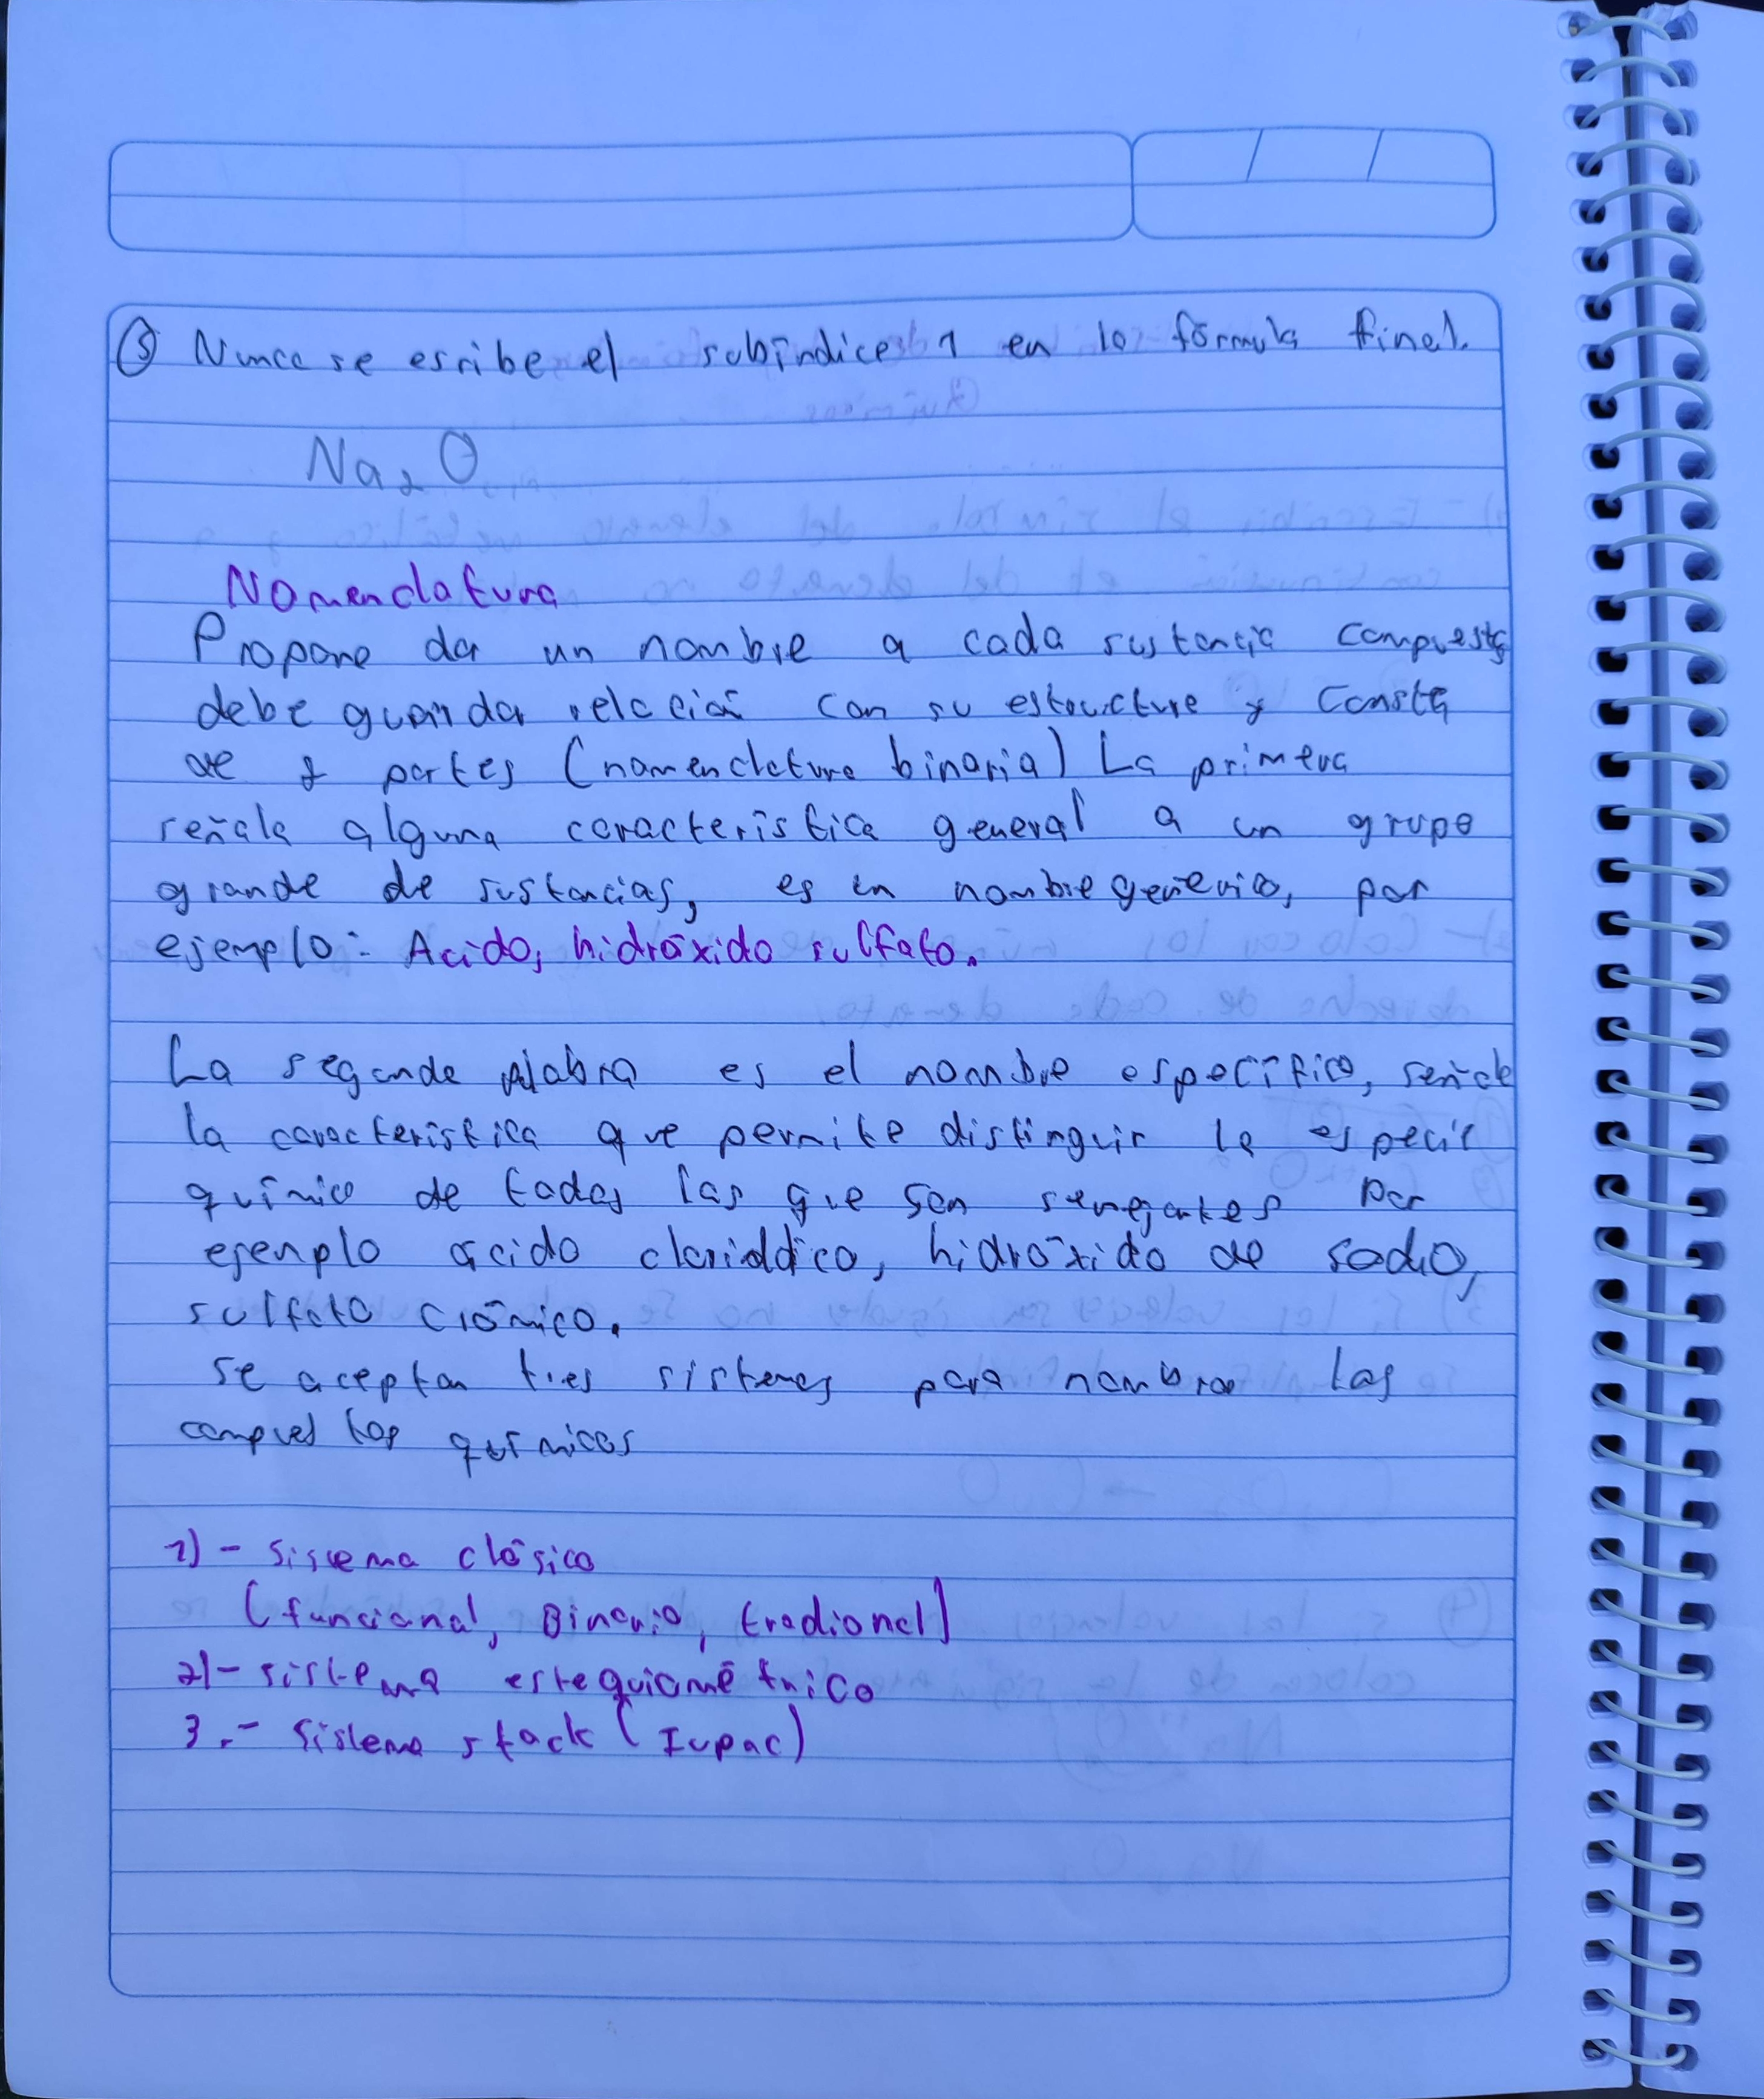 ⑤ Nunca se esribe el subíndice 1 en la fórmula final.
Na₂O
Nomenclatura
Propone dar un nombre a cada sustancia compuesta
debe guardar relación con su estructura y consta
de 2 partes (nomenclatura binaria) La primera
señala alguna característica general a un grupo
grande de sustancias, es un nombre genérico, por
ejemplo: Acido, hidróxido sulfato.
La segunda palabra es el nombre específico, señala
la característica que permite distinguir la especie
químico de todas las que son semejantes por
ejemplo ácido cloriddico, hidróxido de sodio,
sulfato crómico.
se aceptan tres sistemas para nombrar los
compuestos químicos
1)- Sistema clásico
(funcional, Binario, tradional)
2)- sistema estequiométrico
3.- Sistema stock (Iupac)